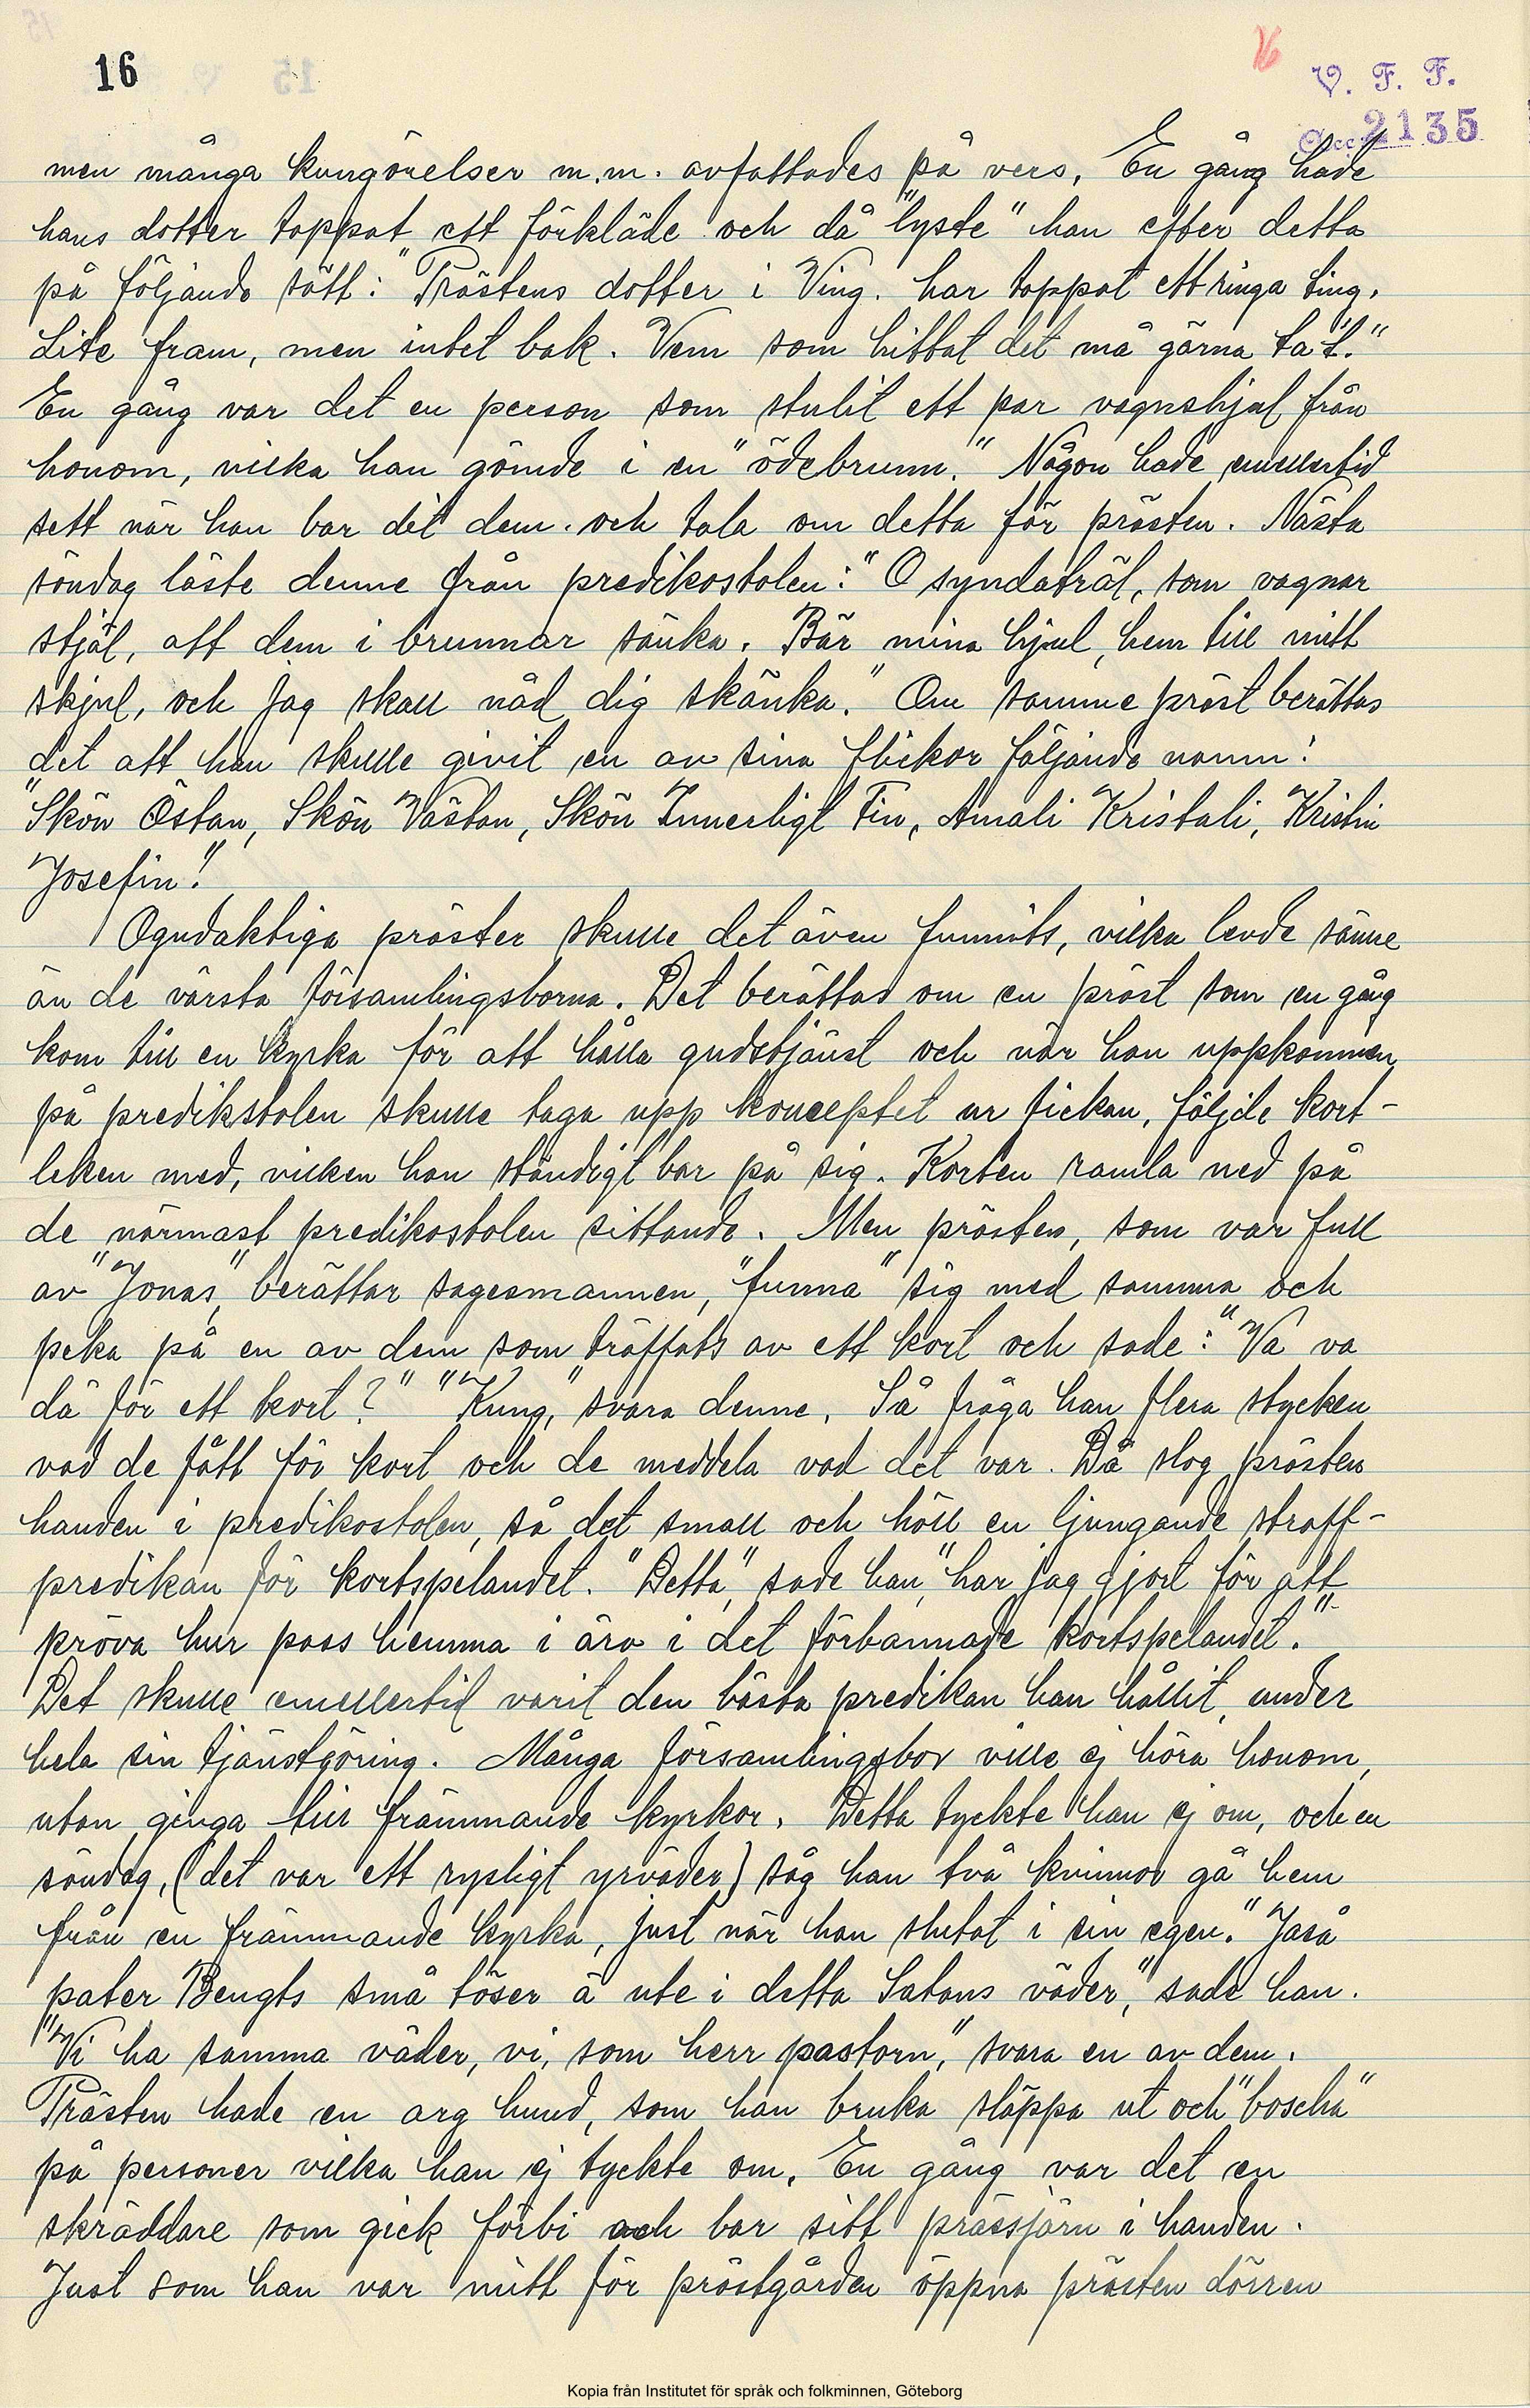 16
16
V. F. F.
Acc. 2135
men många kungörelser m.m. avfattades på vers. En gång hade
hans dotter tappat ett förkläde och då "lyste" han efter detta
på följande sätt: "Prästens dotter i Ving. har tappat ett ringa ting.
Lite fram, men intet bak. Vem som hittat det må gärna ta't."
En gång var det en person som stulit ett par vagnshjul från
honom, vilka han gömde i en "ödebrunn." Någon hade emellertid
sett när han bar dit dem. och tala om detta för prästen. Nästa
söndag läste denne från predikostolen: "O syndaträl, som vagnar
stjäl, att dem i brunnar sänka. Bär mina hjul, hem till mitt
skjul, och jag skall nåd dig skänka." Om samme präst berättas
det att han skulle givit en av sina flickor följande namn:
"Skön Östan, Skön Västan, Skön Innerligt Fin, Amali Kristali, Kristin
Josefin!"
Ogudaktiga präster skulle det även funnits, vilka levde sämre
än de värsta församlingsborna. Det berättas om en präst som en gång
kom till en kyrka för att hålla gudstjänst och när han uppkommen
på predikstolen skulle taga upp konceptet ur fickan, följde kort-
leken med, vilken han ständigt bar på sig. Korten ramla ned på
de närmast predikostolen sittande. Men prästen, som var full
av "Jonas", berättar sagesmannen, "funna" sig med samma och
peka på en av dem som träffats av ett kort och sade: "Va va
dä för ett kort?" "Kung," svara denne. Så fråga han flera stycken
vad de fått för kort och de meddela vad det var. Då slog prästen
handen i predikostolen, så det small och höll en ljungande straff-
predikan för kortspelandet. "Detta," sade han, "har jag gjort för att
pröva hur pass hemma i äro i det förbannade kortspelandet."
Det skulle emellertid varit den bästa predikan han hållit, under
hela sin tjänstgöring. Många församlingsbor ville ej höra honom,
utan ginga till främmande kyrkor. Detta tyckte han ej om, och en
söndag, (det var ett rysligt yrväder) såg han två kvinnor gå hem
från en främmande kyrka, just när han slutat i sin egen. "Jaså
pater Bengts små töser ä ute i detta Satans väder," sade han.
"Vi ha samma väder, vi, som herr pastorn," svara en av dem.
Prästen hade en arg hund, som han bruka släppa ut och "boscha"
på personer vilka han ej tyckte om. En gång var det en
skräddare som gick förbi och bar sitt prässjärn i handen.
Just som han var mitt för prästgården öppna prästen dörren
Kopia från Institutet för språk och folkminnen, Göteborg